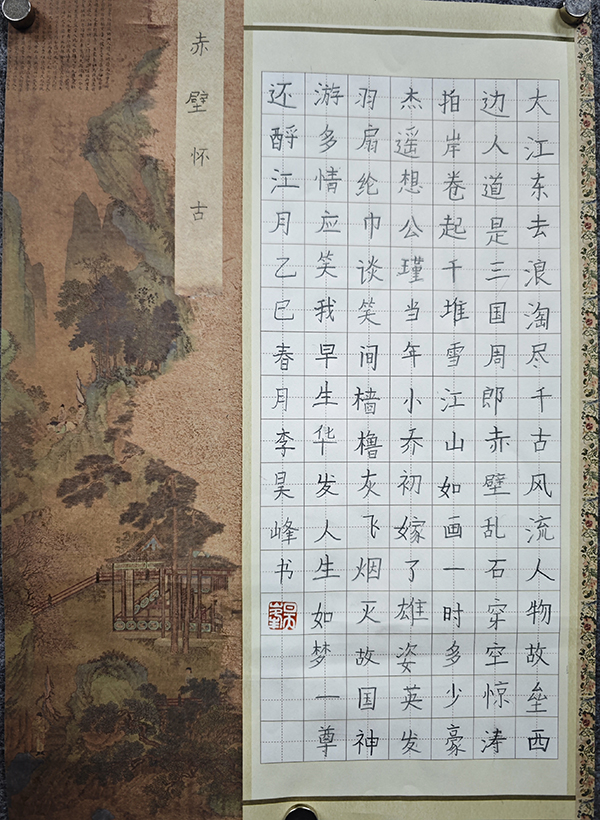 赤壁怀古
大江东去浪淘尽千古风流人物故垒西
边人道是三国周郎赤壁乱石穿空惊涛
拍岸卷起千堆雪江山如画一时多少豪
杰遥想公瑾当年小乔初嫁了雄姿英发
羽扇纶巾谈笑间樯橹灰飞烟灭故国神
游多情应笑我早生华发人生如梦一尊
还酹江月乙巳春月李昊峰书